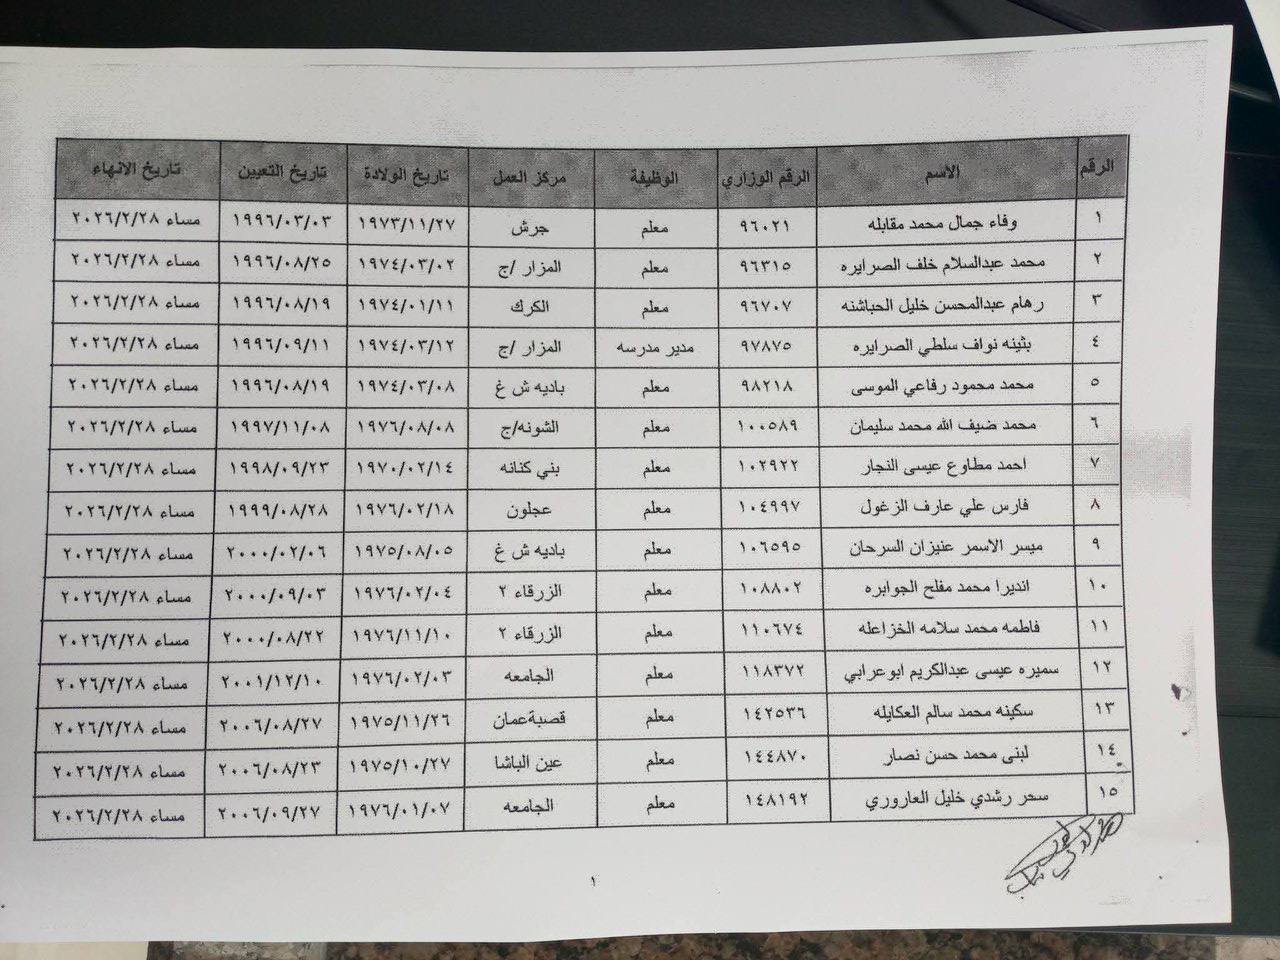 الرقم الاسم الرقم الوزاري الوظيفة مركز العمل تاريخ الولادة تاريخ التعيين تاريخ الانهاء
١ وفاء جمال محمد مقابله ٩٦٠٢١ معلم جرش ١٩٧٣/١١/٢٧ ١٩٩٦/٠٣/٠٣ مساء ٢٠٢٦/٢/٢٨
٢ محمد عبدالسلام خلف الصرايره ٩٦٣١٥ معلم المزار /ج ١٩٧٤/٠٣/٠٢ ١٩٩٦/٠٨/٢٥ مساء ٢٠٢٦/٢/٢٨
٣ رهام عبدالمحسن خليل الحباشنه ٩٦٧٠٧ معلم الكرك ١٩٧٤/٠١/١١ ١٩٩٦/٠٨/١٩ مساء ٢٠٢٦/٢/٢٨
٤ بثينه نواف سلطي الصرايره ٩٧٨٧٥ مدير مدرسه المزار /ج ١٩٧٤/٠٣/١٢ ١٩٩٦/٠٩/١١ مساء ٢٠٢٦/٢/٢٨
٥ محمد محمود رفاعي الموسى ٩٨٢١٨ معلم باديه ش غ ١٩٧٤/٠٣/٠٨ ١٩٩٦/٠٨/١٩ مساء ٢٠٢٦/٢/٢٨
٦ محمد ضيف الله محمد سليمان ١٠٠٥٨٩ معلم الشونه/ج ١٩٧٦/٠٨/٠٨ ١٩٩٧/١١/٠٨ مساء ٢٠٢٦/٢/٢٨
٧ احمد مطاوع عيسى النجار ١٠٢٩٢٢ معلم بني كنانه ١٩٧٠/٠٢/١٤ ١٩٩٨/٠٩/٢٣ مساء ٢٠٢٦/٢/٢٨
٨ فارس علي عارف الزغول ١٠٤٩٩٧ معلم عجلون ١٩٧٦/٠٢/١٨ ١٩٩٩/٠٨/٢٨ مساء ٢٠٢٦/٢/٢٨
٩ ميسر الاسمر عنيزان السرحان ١٠٦٥٩٥ معلم باديه ش غ ١٩٧٥/٠٨/٠٥ ٢٠٠٠/٠٢/٠٦ مساء ٢٠٢٦/٢/٢٨
١٠ انديرا محمد مفلح الجوابره ١٠٨٨٠٢ معلم الزرقاء ٢ ١٩٧٦/٠٢/٠٤ ٢٠٠٠/٠٩/٠٣ مساء ٢٠٢٦/٢/٢٨
١١ فاطمه محمد سلامه الخزاعله ١١٠٦٧٤ معلم الزرقاء ٢ ١٩٧٦/١١/١٠ ٢٠٠٠/٠٨/٢٢ مساء ٢٠٢٦/٢/٢٨
١٢ سميره عيسى عبدالكريم ابوعرابي ١١٨٣٧٢ معلم الجامعه ١٩٧٦/٠٢/٠٣ ٢٠٠١/١٢/١٠ مساء ٢٠٢٦/٢/٢٨
١٣ سكينه محمد سالم العكايله ١٤٢٥٣٦ معلم قصبةعمان ١٩٧٥/١١/٢٦ ٢٠٠٦/٠٨/٢٧ مساء ٢٠٢٦/٢/٢٨
١٤ لبنى محمد حسن نصار ١٤٤٨٧٠ معلم عين الباشا ١٩٧٥/١٠/٢٧ ٢٠٠٦/٠٨/٢٣ مساء ٢٠٢٦/٢/٢٨
١٥ سحر رشدي خليل العاروري ١٤٨١٩٢ معلم الجامعه ١٩٧٦/٠١/٠٧ ٢٠٠٦/٠٩/٢٧ مساء ٢٠٢٦/٢/٢٨
١